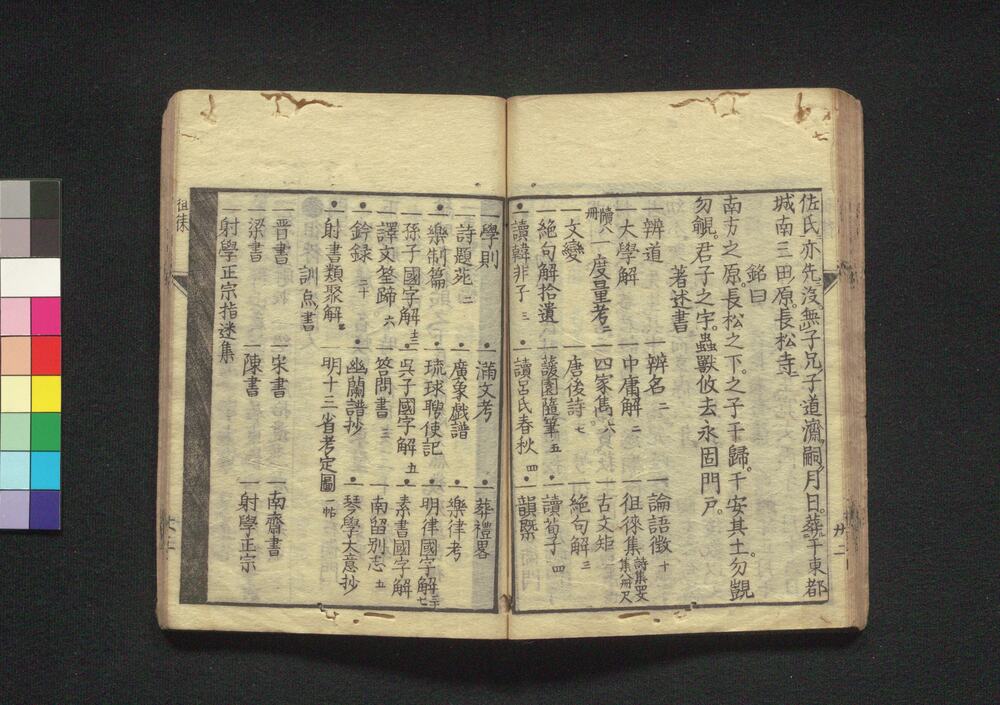 佐氏亦先沒無子兄子道濟嗣月日葬于東都
城南三田原長松寺
銘曰
南方之原長松之下之子于歸于安其土勿覬
勿覦君子之宇蟲獸攸去永固門戶
著述書
一辨道 一辨名 二 一論語徵 十
一大學解 一中庸解 二 一徂徠集
一度量考 二 一四家雋 六 一古文矩
一文變 一唐後詩 七 一絶句解 三
一絶句解拾遺 一蘐園隨筆 五 一讀荀子 四
一讀韓非子 三 一讀呂氏春秋 四 一韻槩
一學則 一滿文考 一葬禮畧
一詩題苑 二 一廣象戲譜 一樂律考
一樂制篇 一琉球聘使記 一明律國字解
一孫子國字解 十三 一吳子國字解 五 一素書國字解
一譯文筌蹄 六 一答問書 三 一南留別志 五
一鈐録 二十 一幽蘭譜抄 一琴學大意抄
一射書類聚解 一明十三省考定圖 一帖
訓点書
一晋書 一宋書 一南齋書
一梁書 一陳書 一射學正宗
一射學正宗指迷集
徂徠